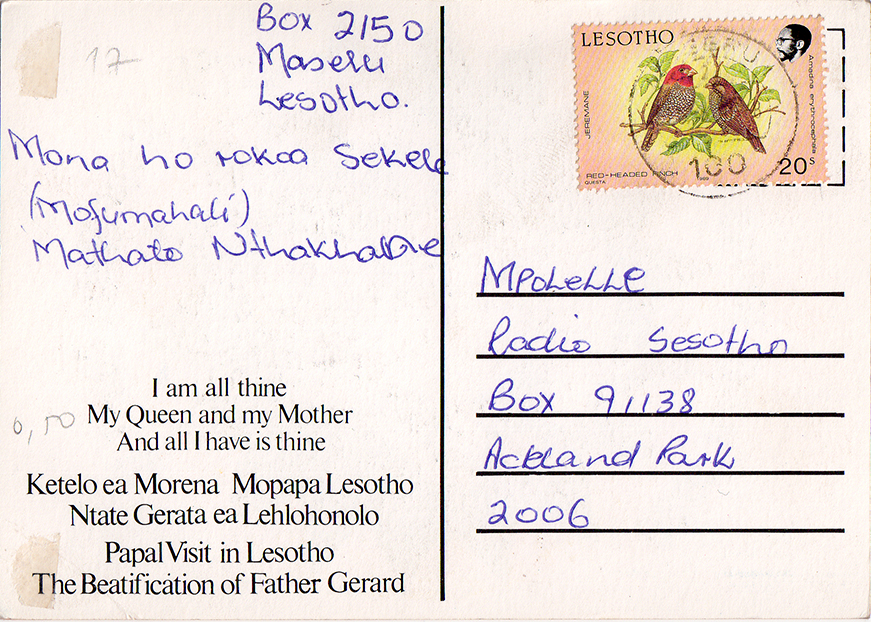 Box 2150
Maseru
Lesotho.
17
Mona ho rokoa Sekele
(Mofumahali)
Mathato
I am all thine
My Queen and my Mother
And all I have is thine
0,50
Ketelo ea Morena Mopapa Lesotho
Ntate Gerata ea Lehlohonolo
Papal Visit in Lesotho
The Beatification of Father Gerard
LESOTHO
JEREMANE
Amadina erythrocephala
RED-HEADED FINCH
QUESTA
1989
20s
100
Mpolelle
Radio Sesotho
Box 91138
Ackland Park
2006